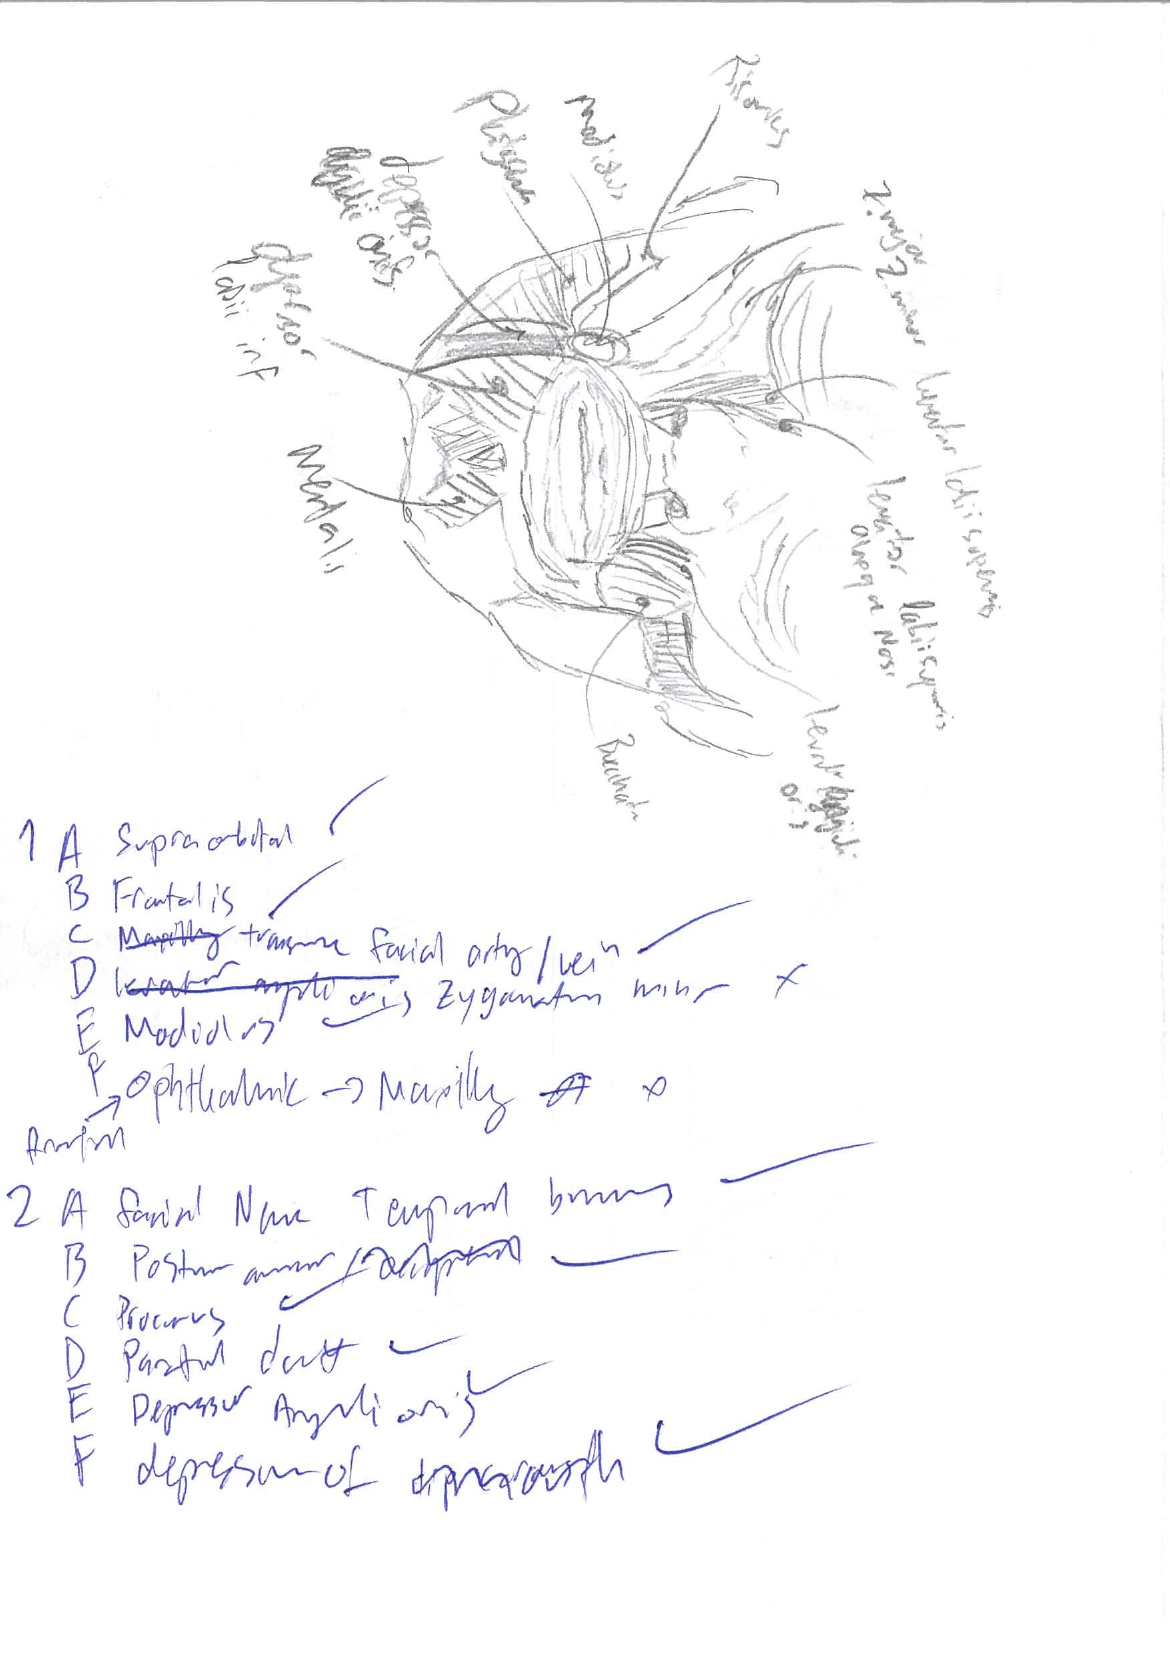 Risorius
modiolus
Platysma
depressor
anguli oris
depressor
labii inf
Mentalis
Z. major
Z. minor
levator labii superioris
levator labii superioris
alaeque Nasi
levator anguli
oris
Buccinator
1 A Supraorbital
B Frontalis
C Maxillary transverse facial artery/vein
D levator anguli oris Zygomaticus minor x
E Modiolus
F Ophthalmic → Maxillary x
2 A Facial Nerve Temporal branches
B Posterior auricular
C Procerus
D Parotid duct
E Depressor Anguli oris
F depression of